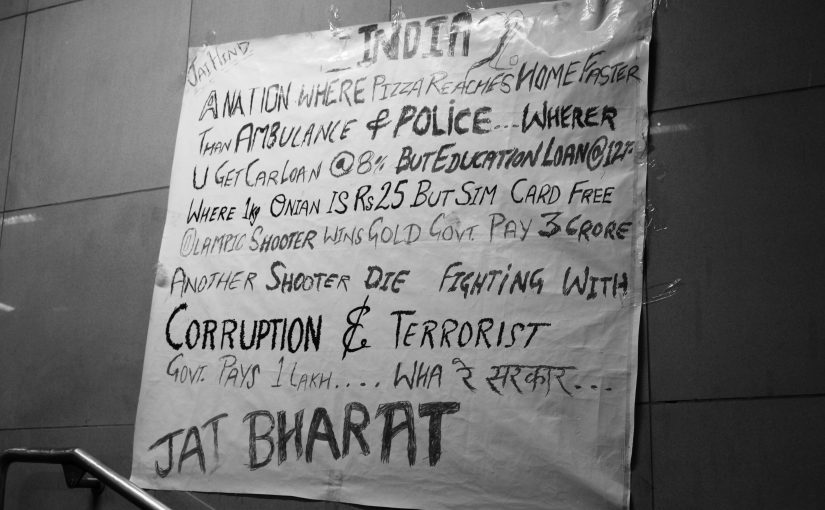 JAI HIND
INDIA
A NATION WHERE PIZZA REACHES HOME FASTER
THAN AMBULANCE & POLICE... WHERER
U GET CAR LOAN @ 8% BUT EDUCATION LOAN @ 12%
WHERE 1kg ONIAN IS Rs 25 BUT SIM CARD FREE
OLAMPIC SHOOTER WINS GOLD GOVT. PAY 3 CRORE
ANOTHER SHOOTER DIE FIGHTING WITH
CORRUPTION & TERRORIST
GOVT. PAYS 1 LAKH.... WHA रे सरकार...
JAI BHARAT